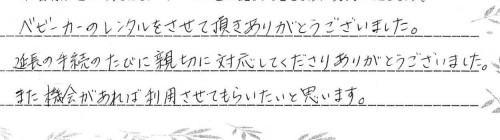 ベビーカーのレンタルをさせて頂きありがとうございました。
延長の手続のたびに親切に対応してくださりありがとうございました。
また機会があれば利用させてもらいたいと思います。